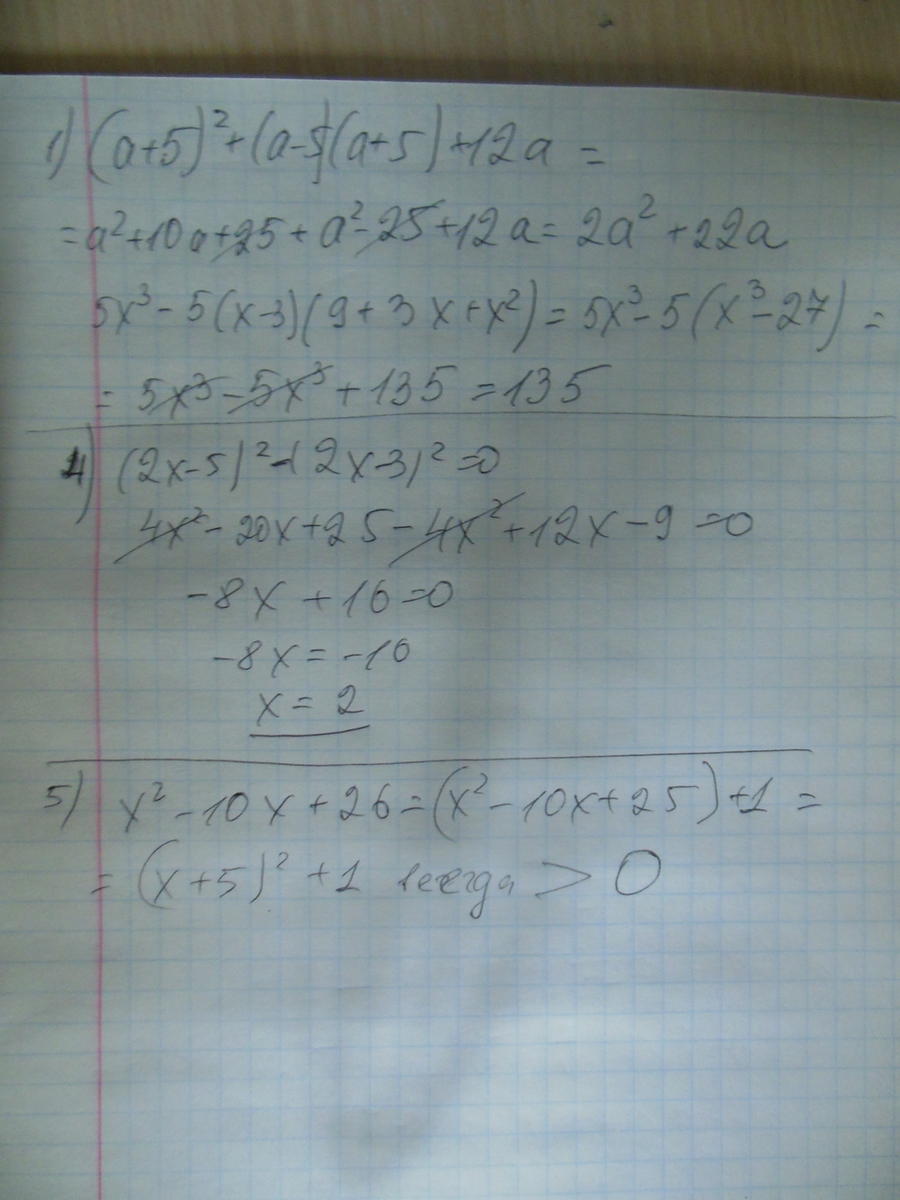 1) (a+5)²+(a-5)(a+5)+12a =
=a²+10a+25+a²-25+12a=2a²+22a
5x³-5(x-3)(9+3x+x²)=5x³-5(x³-27)=
= 5x³-5x³+135=135
4) (2x-5)²-(2x-3)²=0
4x²-20x+25-4x²+12x-9=0
-8x+16=0
-8x=-16
x=2
5) x²-10x+26=(x²-10x+25)+1=
= (x+5)²+1 всегда > 0